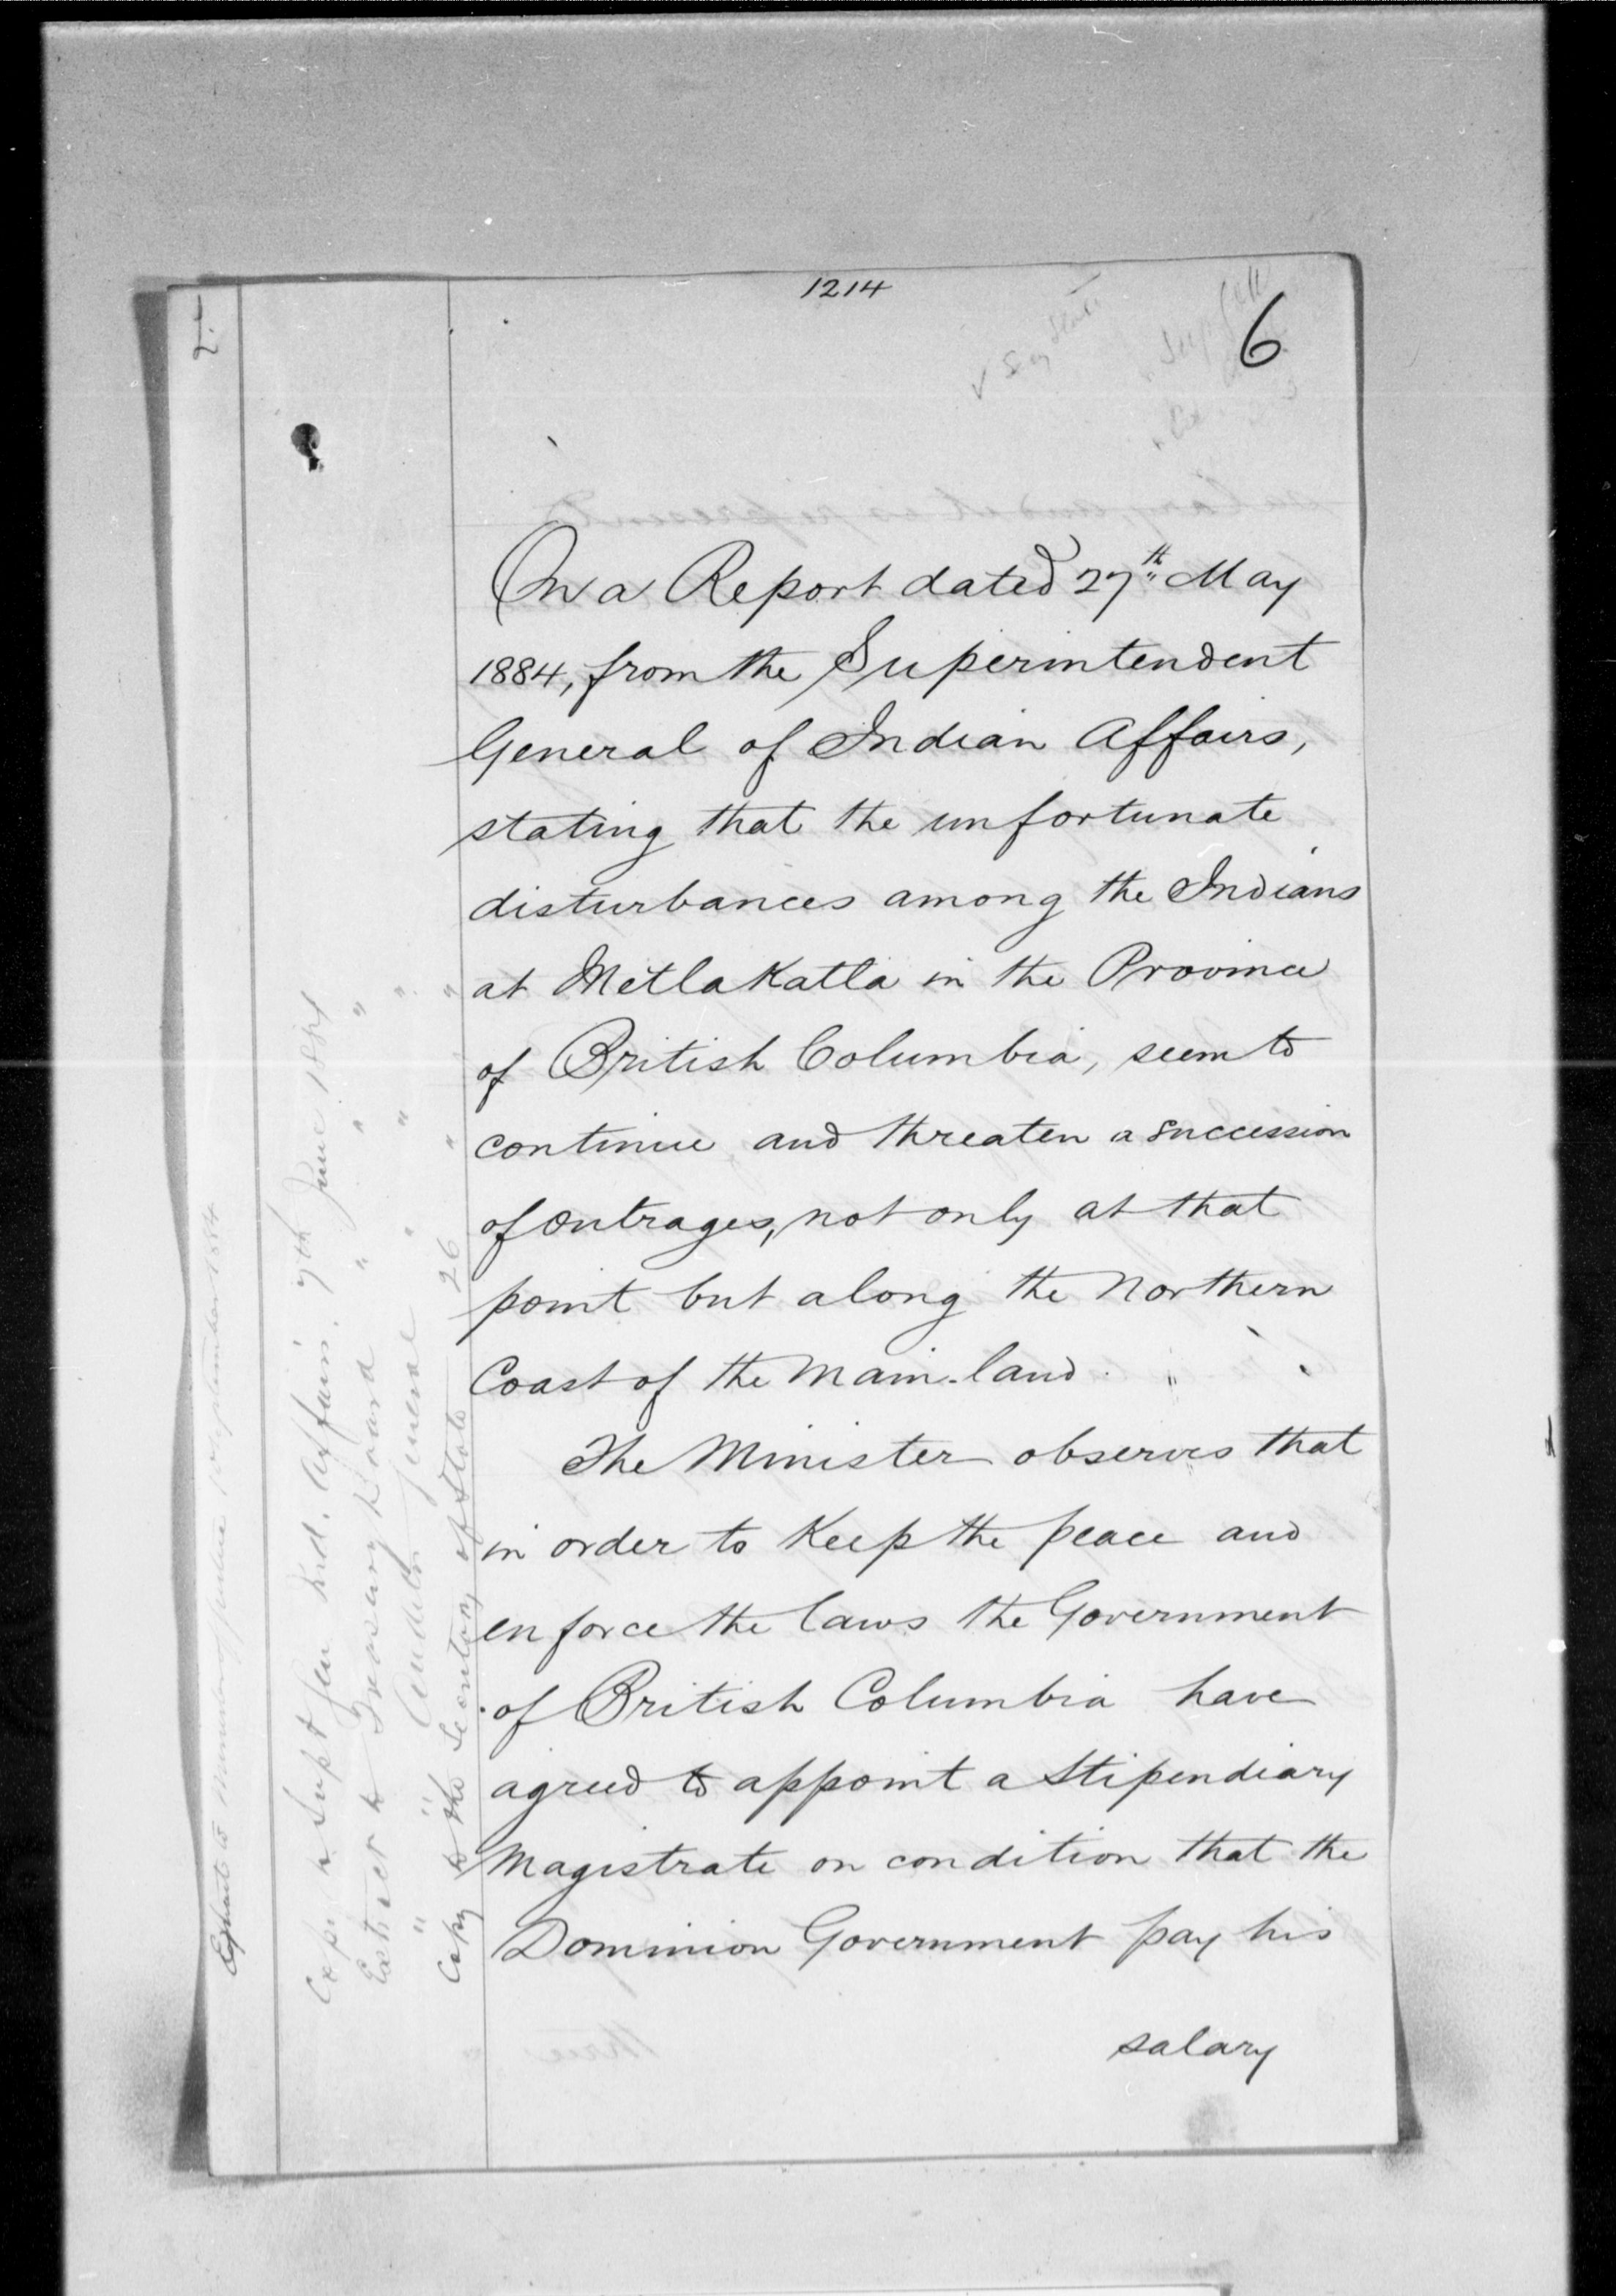 1214
6
On a Report dated 27th May
1884, from the Superintendent
General of Indian Affairs,
stating that the unfortunate
disturbances among the Indians
at Metlakatla in the Province
of British Columbia, seem to
continue and threaten a succession
of outrages, not only at that
point but along the Northern
Coast of the Main-land.
The Minister observes that
in order to Keep the peace and
enforce the laws the Government
of British Columbia have
agreed to appoint a Stipendiary
Magistrate on condition that the
Dominion Government pay his
salary
Copy to Supt Gen Ind. Affairs. 7th June 1884
Extract to Treasury Board " " " "
" " Auditor General " " "
Copy to the Secretary of State 26 " "